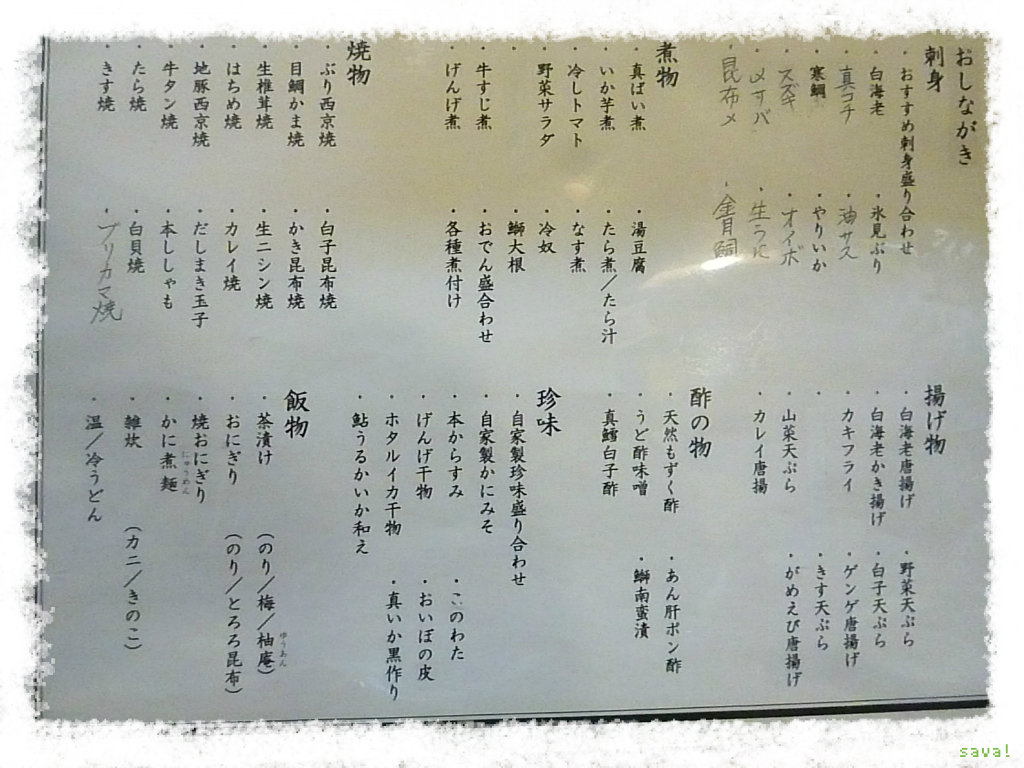 おしながき
刺身
・おすすめ刺身盛り合わせ
・白海老
・氷見ぶり
・真コチ
・油サス
・寒鯛
・やりいか
・スズキ
・オイボ
・〆サバ
・生うに
・昆布〆
・金目鯛
煮物
・真ばい煮
・湯豆腐
・いか芋煮
・たら煮／たら汁
・冷しトマト
・なす煮
・野菜サラダ
・冷奴
・鰤大根
・牛すじ煮
・おでん盛合わせ
・げんげ煮
・各種煮付け
焼物
・ぶり西京焼
・白子昆布焼
・目鯛かま焼
・かき昆布焼
・生椎茸焼
・生ニシン焼
・はちめ焼
・カレイ焼
・地豚西京焼
・だしまき玉子
・牛タン焼
・本ししゃも
・たら焼
・白貝焼
・きす焼
・ブリカマ焼
揚げ物
・白海老唐揚げ
・野菜天ぷら
・白海老かき揚げ
・白子天ぷら
・カキフライ
・ゲンゲ唐揚げ
・きす天ぷら
・山菜天ぷら
・がめえび唐揚げ
・カレイ唐揚
酢の物
・天然もずく酢
・あん肝ポン酢
・うど酢味噌
・鰤南蛮漬
・真鱈白子酢
珍味
・自家製珍味盛り合わせ
・自家製かにみそ
・本からすみ
・このわた
・げんげ干物
・おいぼの皮
・ホタルイカ干物
・真いか黒作り
・鮎うるかいか和え
飯物
・茶漬け （のり／梅／柚庵）
ゆうあん
・おにぎり （のり／とろろ昆布）
・焼おにぎり
・かに煮麺
にゅうめん
・雑炊 （カニ／きのこ）
・温／冷うどん
sava!